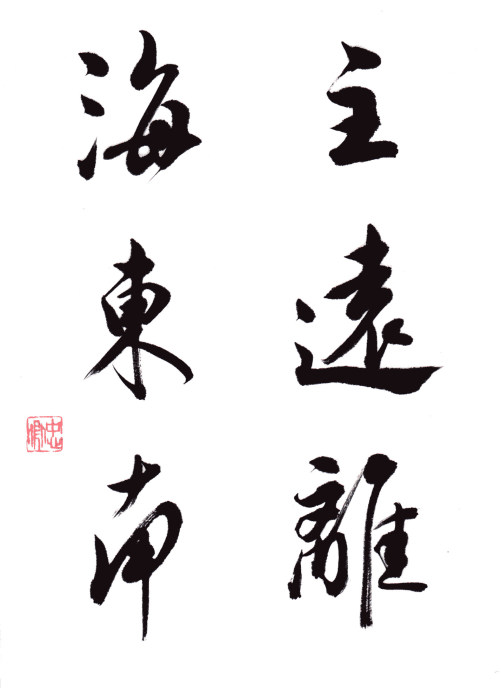 主遠離
海東南